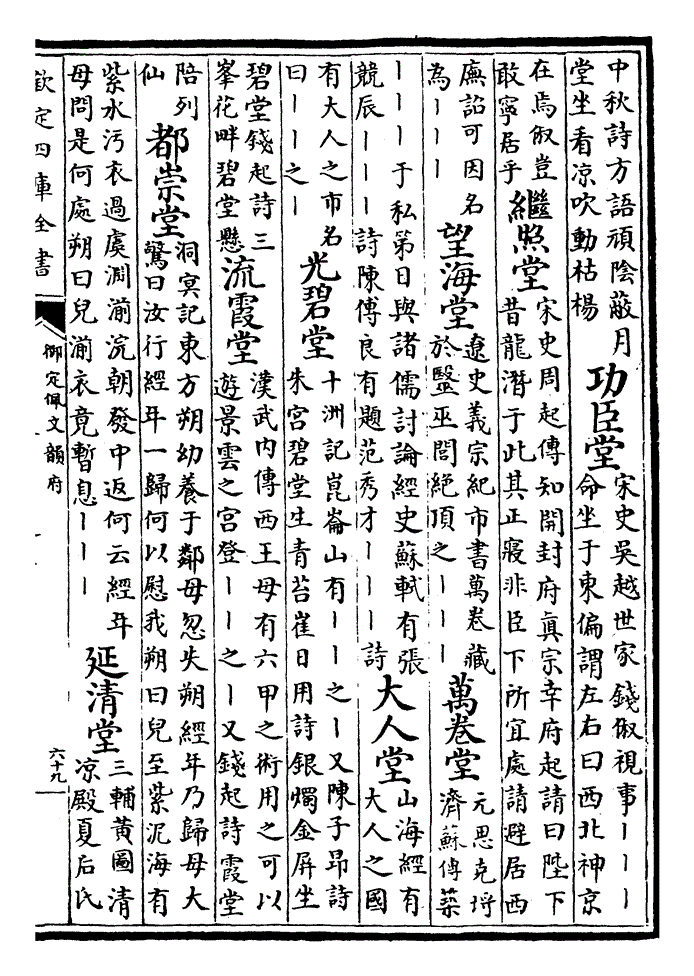 中秋詩方語頑陰蔽月
堂坐看凉吹動枯楊
功臣堂
宋史吳越世家錢俶視事｜｜｜
命坐于東偏謂左右曰西北神京
在焉俶豈
敢寧居乎
繼照堂
宋史周起傳知開封府真宗幸府起請曰陛下
昔龍潛于此其正寢非臣下所宜處請避居西
廡詔可因名
為｜｜｜
望海堂
遼史義宗紀市書萬卷藏
於毉巫閭絶頂之｜｜
萬卷堂
元思克埒
濟蘇傳築
｜｜｜于私第日與諸儒討論經史蘇軾有張
競辰｜｜｜詩陳傅良有題范秀才｜｜｜詩
大人堂
山海經有
大人之國
有大人之市名
曰｜｜之｜
光碧堂
十洲記崑崙山有｜｜之｜又陳子昂詩
朱宮碧堂生青苔崔日用詩銀燭金屏坐
碧堂錢起詩三
峯花畔碧堂懸
流霞堂
漢武内傳西王母有六甲之術用之可以
遊景雲之宮登｜｜之｜又錢起詩霞堂
陪列
仙
都崇堂
洞冥記東方朔幼養于鄰母忽失朔經年乃歸母大
驚曰汝行經年一歸何以慰我朔曰兒至紫泥海有
紫水汚衣過虞淵湔浣朝發中返何云經年
母問是何處朔曰兒湔衣竟暫息｜｜｜
延清堂
三輔黄圖清
凉殿夏后氏
欽定四庫全書
御定佩文韻府
六十九